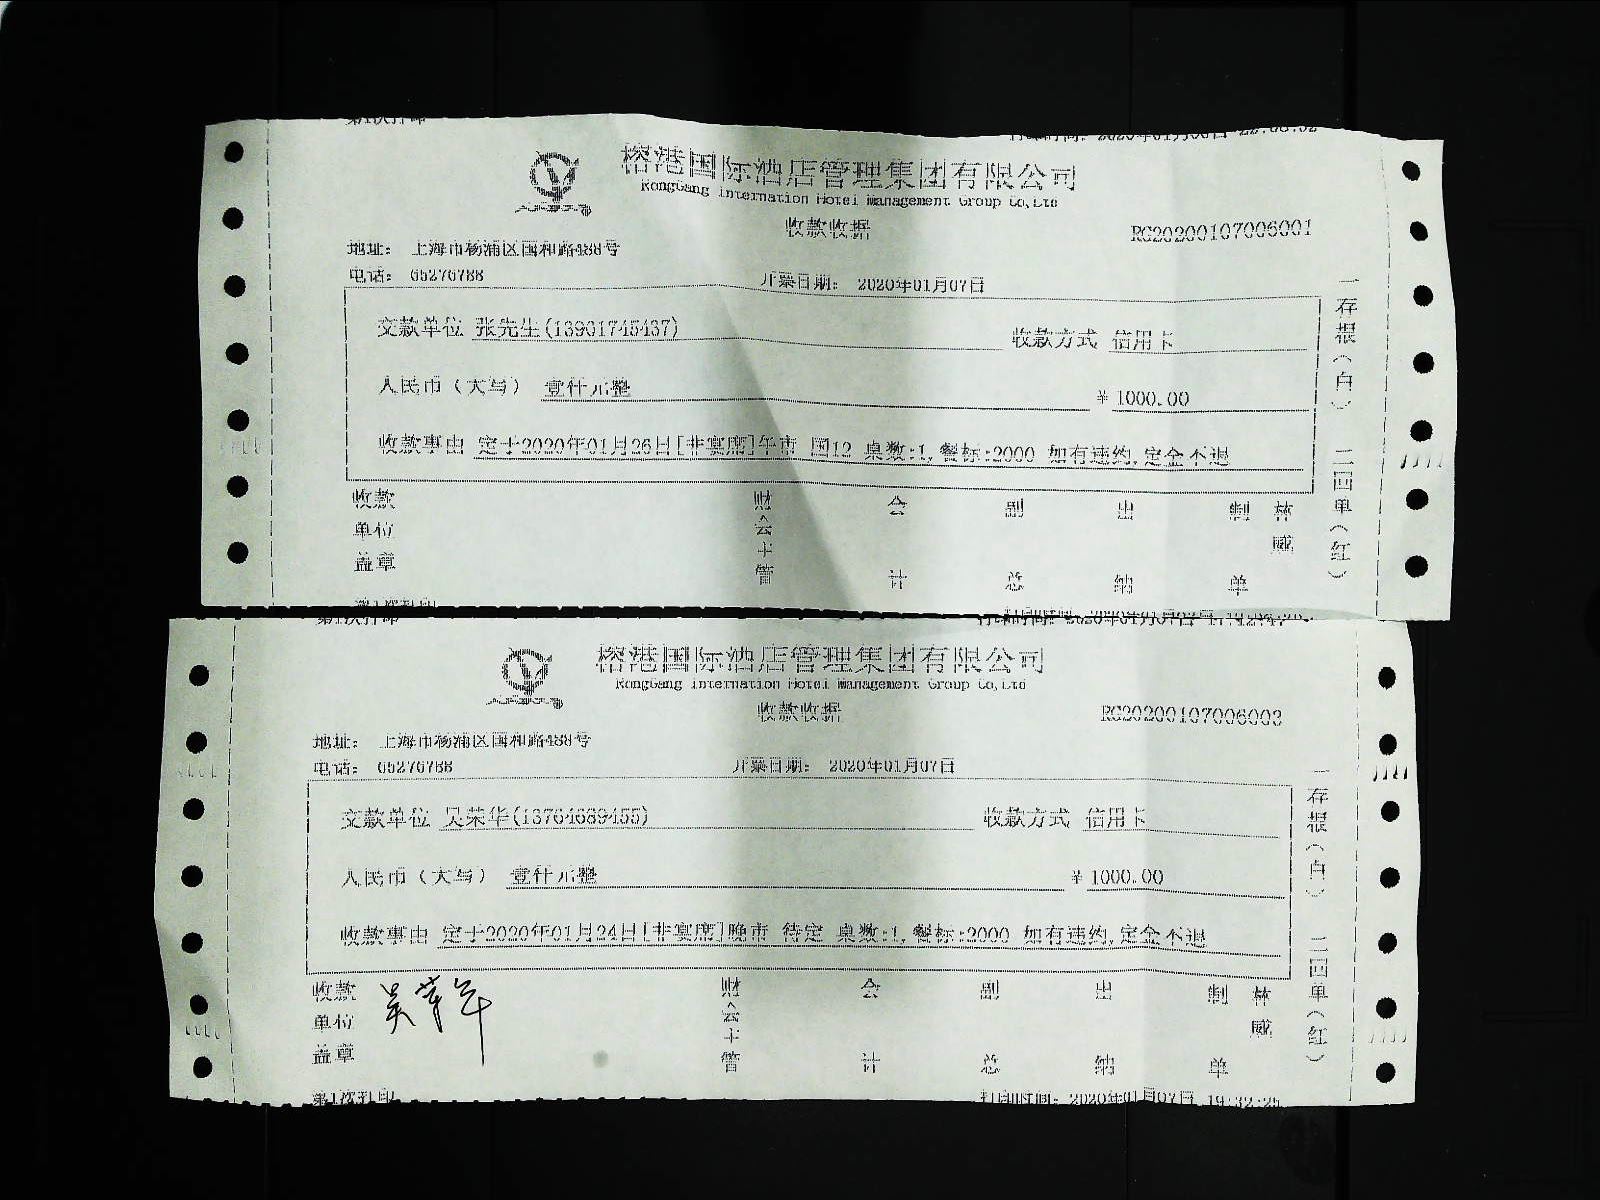 榕港国际酒店管理集团有限公司
RongGang Internation Hotel Management Group Co,Ltd
收款收据 RG20200107006001
地址： 上海市杨浦区国和路488号
电话： 65276788 开票日期： 2020年01月07日
交款单位 张先生(13931745437) 收款方式 信用卡
人民币（大写） 壹仟元整 ￥1000.00
收款事由 定于2020年01月26日[非宴席]午市 国12 桌数:1,餐标:2000 如有违约,定金不退
一存根（白） 二回单（红）
收款单位盖章 财会主管 会计 副总 出纳 制单 林威
第1次打印
榕港国际酒店管理集团有限公司
RongGang Internation Hotel Management Group Co,Ltd
收款收据 RG20200107006003
地址： 上海市杨浦区国和路488号
电话： 65276788 开票日期： 2020年01月07日
交款单位 吴荣华(13764689455) 收款方式 信用卡
人民币（大写） 壹仟元整 ￥1000.00
收款事由 定于2020年01月24日[非宴席]晚市 待定 桌数:1,餐标:2000 如有违约,定金不退
一存根（白） 二回单（红）
收款单位盖章 吴荣华 财会主管 会计 副总 出纳 制单 林威
第1次打印 打印时间: 2020年01月07日 19:32:25